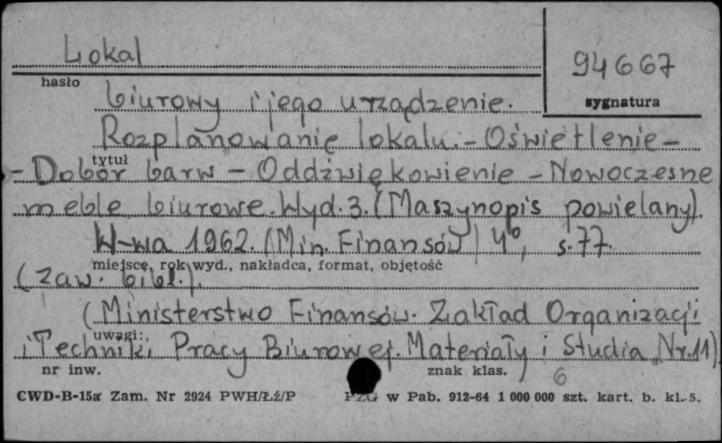 Lokal
94667
hasło
sygnatura
biurowy i jego urządzenie.
Rozplanowanie lokalu. - Oświetlenie -
tytuł
- Dobór barw - Oddźwiękowienie - Nowoczesne
meble biurowe. Wyd. 3. (Maszynopis powielany).
W-wa 1962. (Min. Finansów) 4°, s. 77.
miejsce, rok wyd., nakładca, format, objętość
(zaw. bibl.).
(Ministerstwo Finansów. Zakład Organizacji
uwagi:
i Techniki Pracy Biurowej. Materiały i Studia Nr. 11).
nr inw.
znak klas.
6
CWD-B-15a Zam. Nr 2924 PWH/Łź/P
PZG w Pab. 912-64 1 000 000 szt. kart. b. kl. 5.